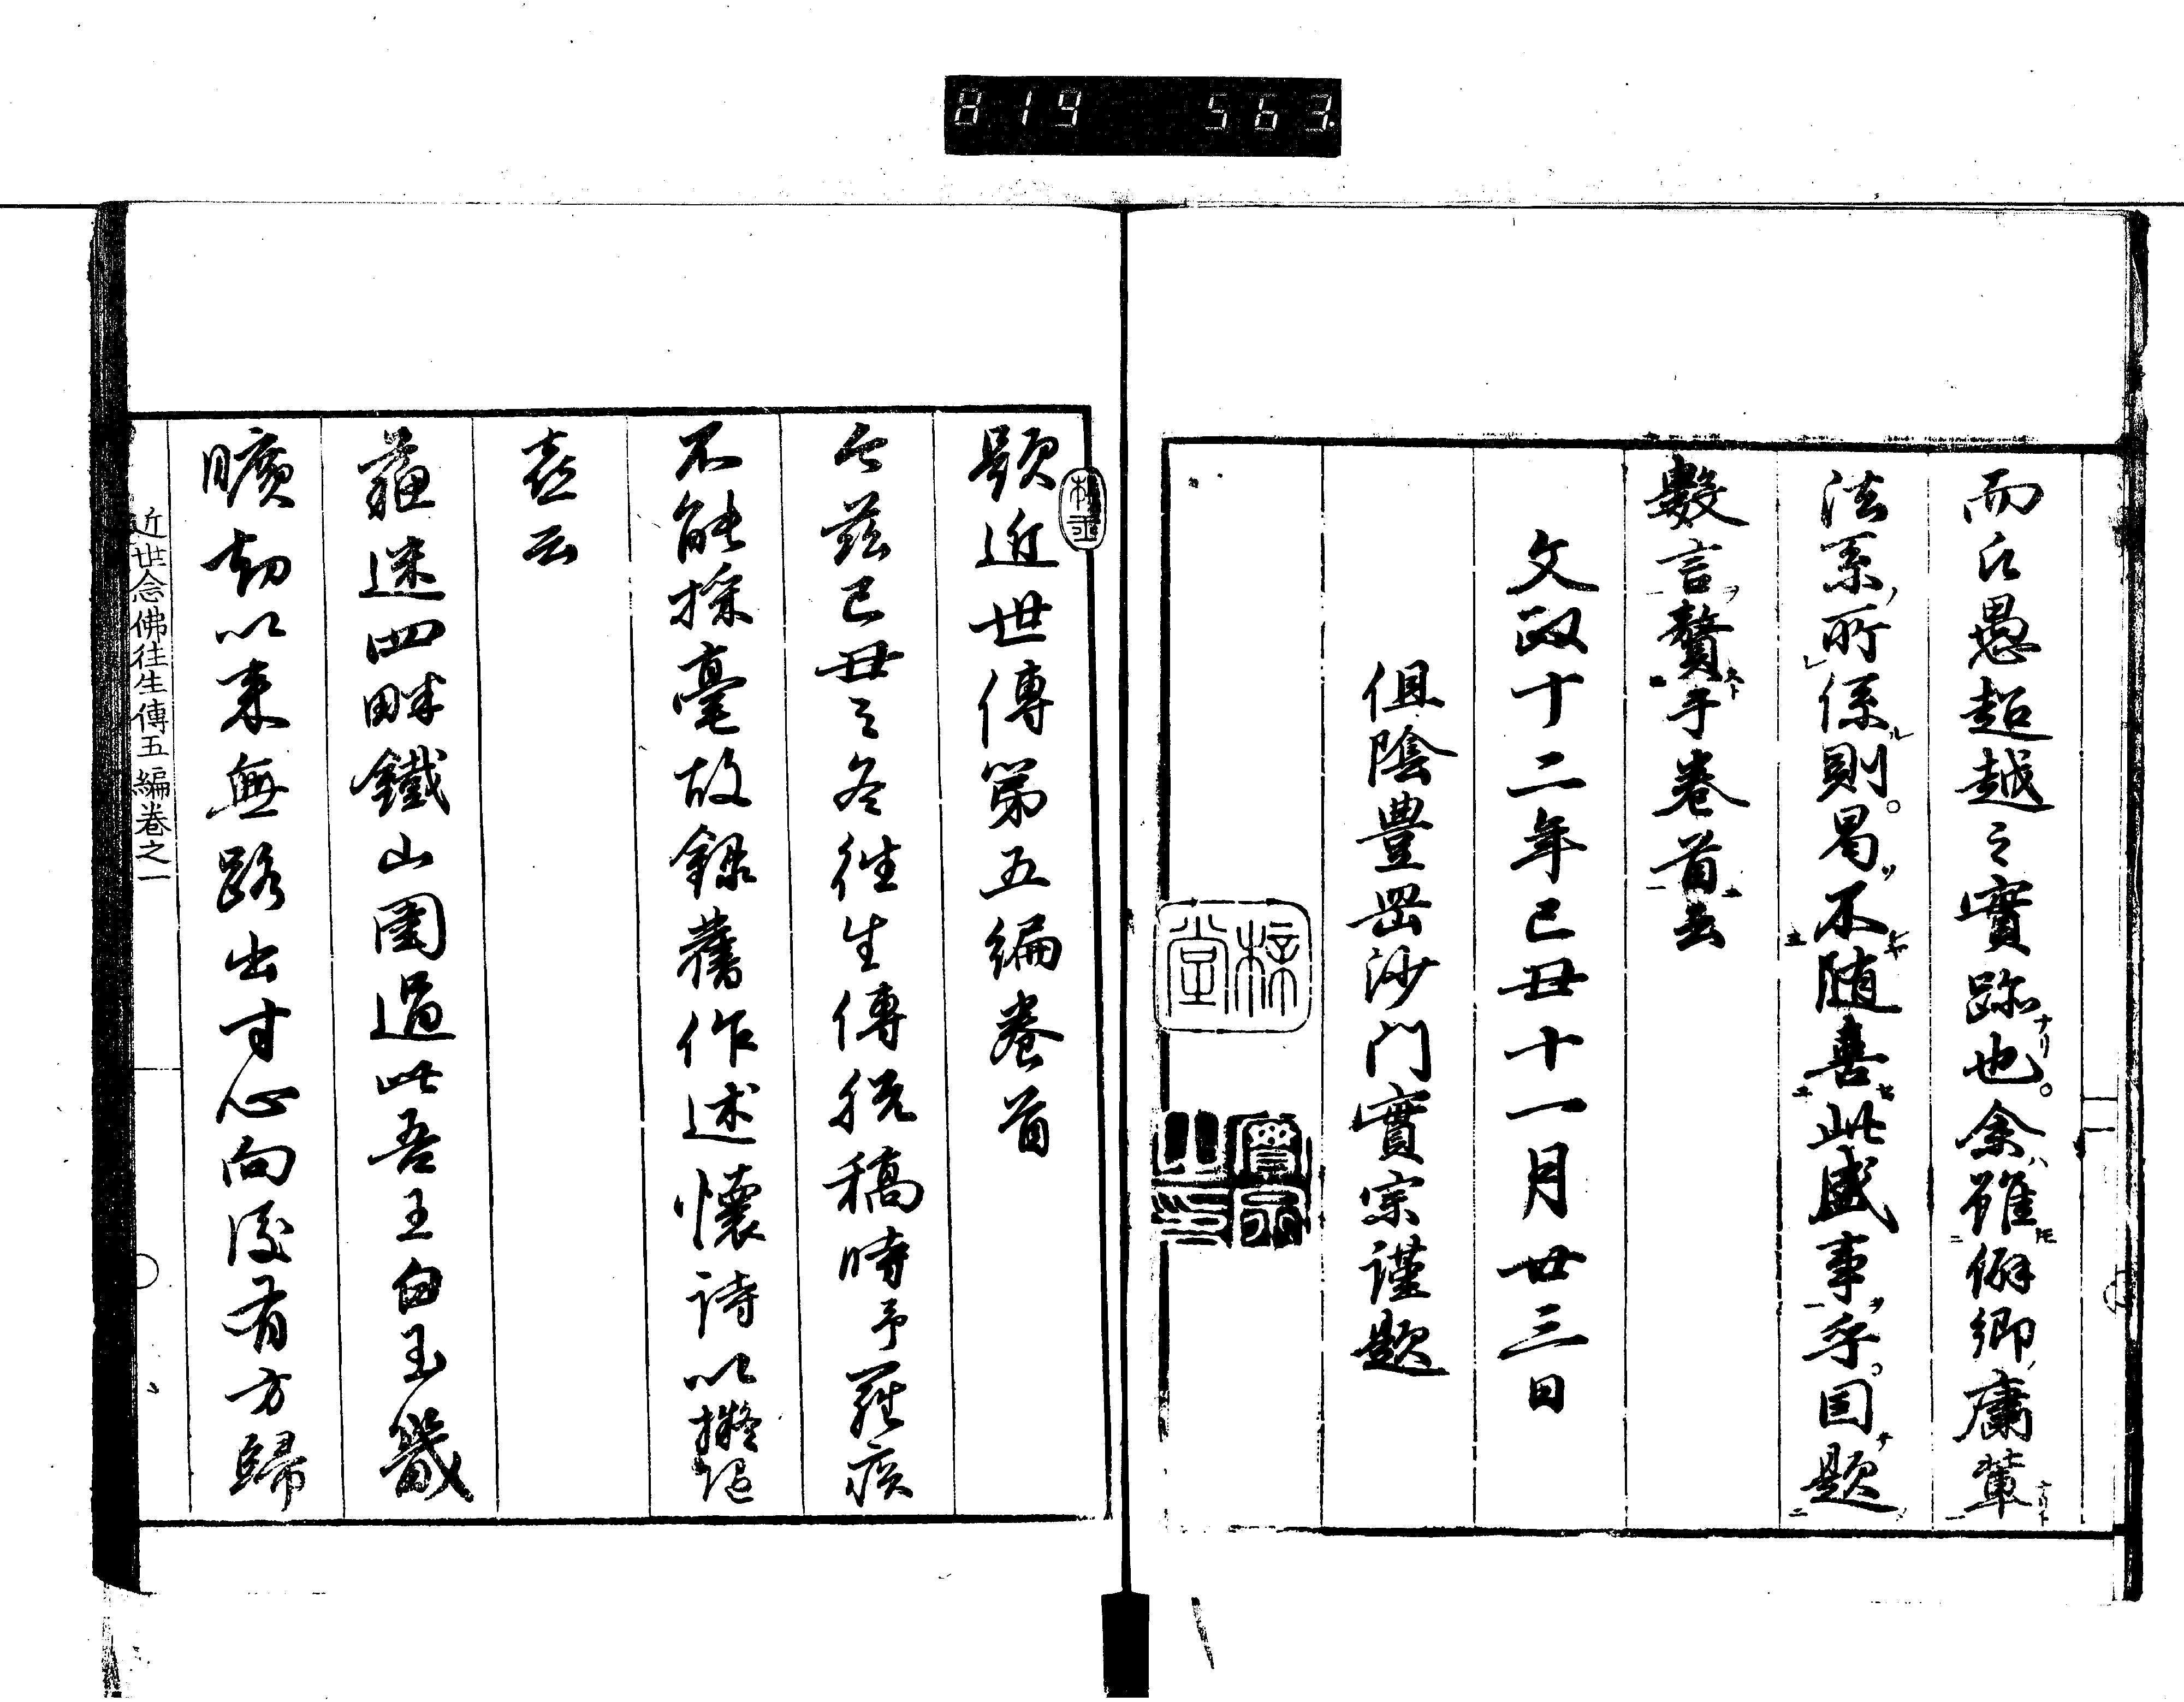 819 563
而氐愚超越之實跡也。余雖僻鄉庸輩
法系所係則。曷不随喜此盛事乎。因題
數言贅乎卷首云
文政十二年己丑十一月廿三日
但陰豊岳沙門實宗謹題
梅堂
實宗之印
題近世傳第五編卷首
今茲己丑之冬往生傳脱稿時予罹疾
不能採毫故録舊作述懷詩以擬随
喜云
藕逕四畔鐵山圍過此吾王白玉畿
曠劫以来無路出寸心向後有方歸
近世念佛往生傳五編卷之一